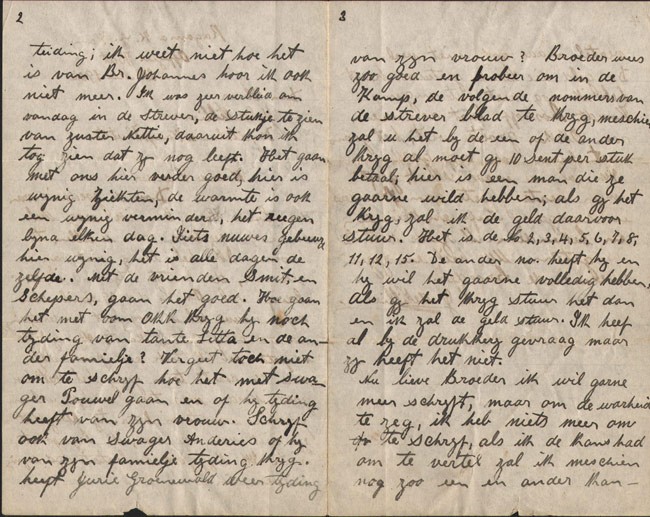 2
teiding; ik weet niet hoe het
is van Br. Johannes hoor ik ook
niet meer. Ik was zeer verblied om
vandag in de Strever, de stukje te zien
van zuster Hettie, daaruit kon ik
tog zien dat zy nog leeft. Het gaan
met ons hier verder goed, hier is
wynig ziekten, de warmte is ook
een wynig verminder, het regen
byna elken dag. Iets nuwes gebeurd
hier wynig, het is alle dagen de
zelfde. Met de vrienden Smit, en
Schepers, gaan het goed. Hoe gaan
het met oom Okk kryg hy noch
tyding van tante Litta en de an-
der familje? Vergeet toch niet
om te schryf hoe het met swa-
ger Pouwel gaan en of hy tyding
heeft van zyn vrouw. Schryf
ook van Swager Anderies of hy
van zyn familje tyding kryg.
heeft Jurie Groenewald weer tyding
3
van zyn vrouw? Broeder wees
zoo goed en probeer om in de
Kamp, de volgende nommers van
de strever blad te kryg, meschien
zal u het by de een of de ander
kryg al moet gy 10 Sent per stuk
betaal; hier is een man die ze
gaarne wild hebben; als gy het
kryg, zal ik de geld daarvoor
stuur. Het is de No 2, 3, 4, 5, 6, 7, 8,
11, 12, 15. De ander no. heeft hy en
hy wil het gaarne volledig hebben,
Als gy het kryg stuur het dan
en ik zal de geld stuur. Ik heef
al by de drukkery gevraag maar
zy heeft het niet.
Nu lieve Broeder ik wil garne
meer schryft, maar om de warheid
te zeg, ik heb niets meer om
te schryf, als ik de kans had
om te vertel zal ik meschien
nog zoo een en ander kan-